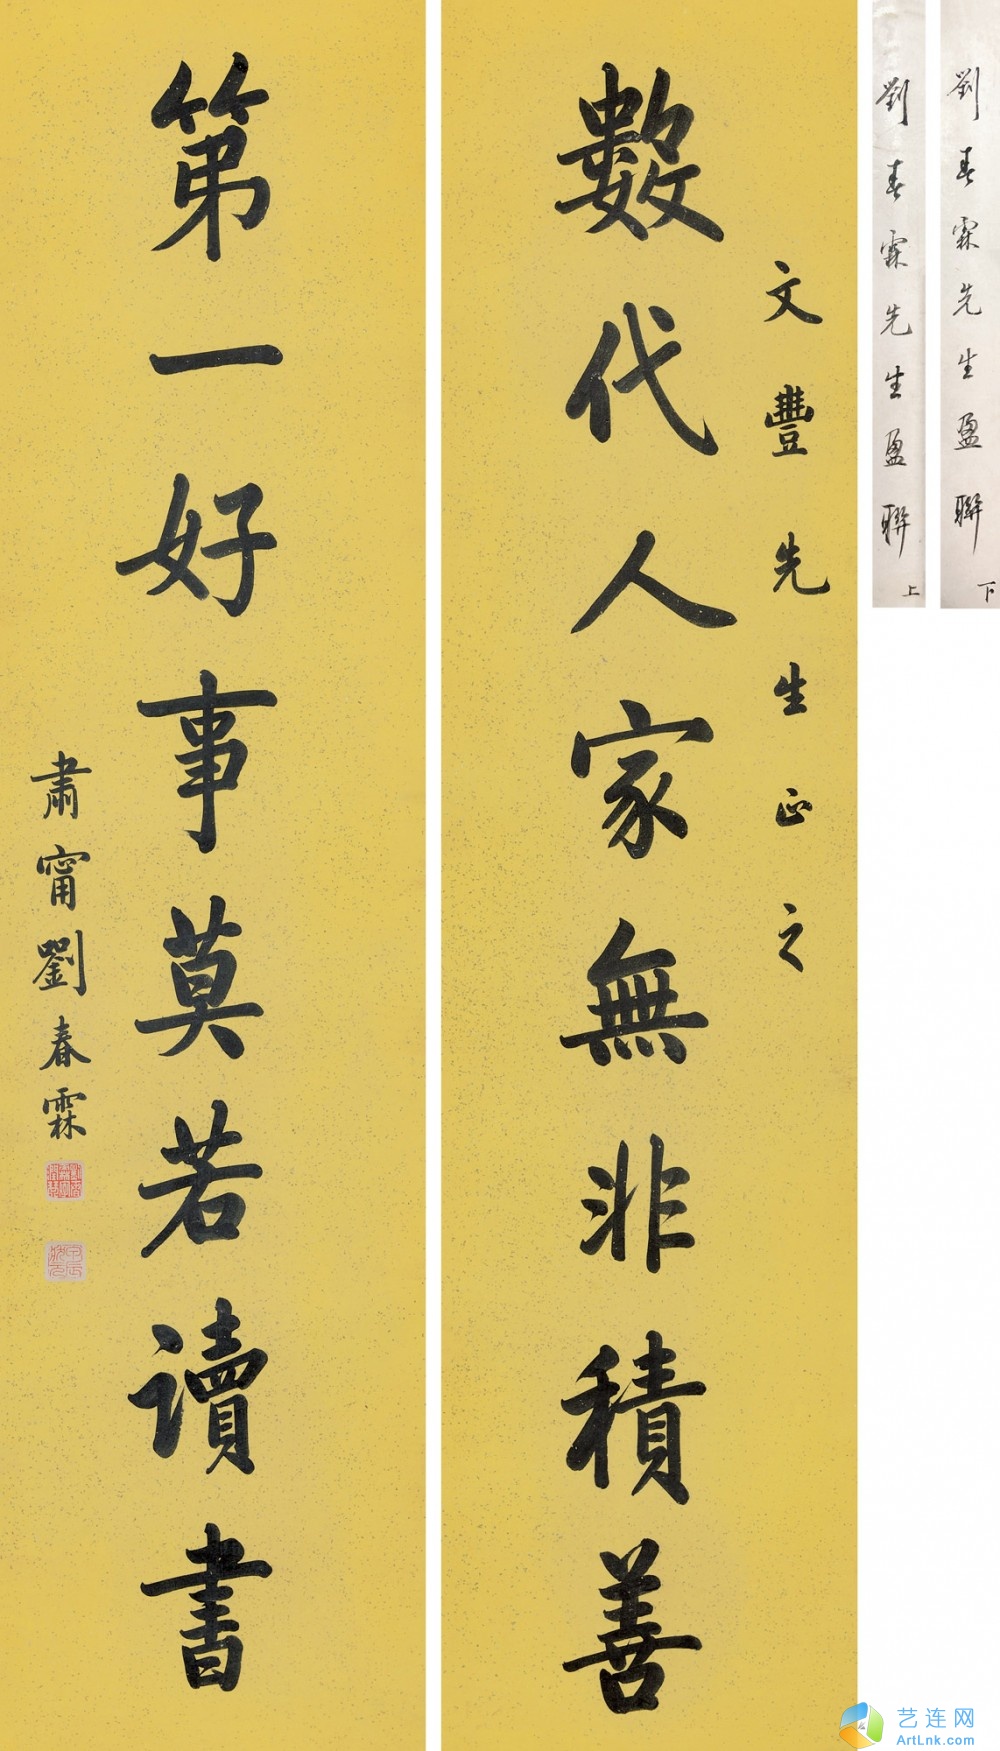 文豐先生正之
數代人家無非積善
第一好事莫若讀書
肅甯劉春霖
劉春霖先生盈聯 上
劉春霖先生盈聯 下
艺连网
ArtLnk.com